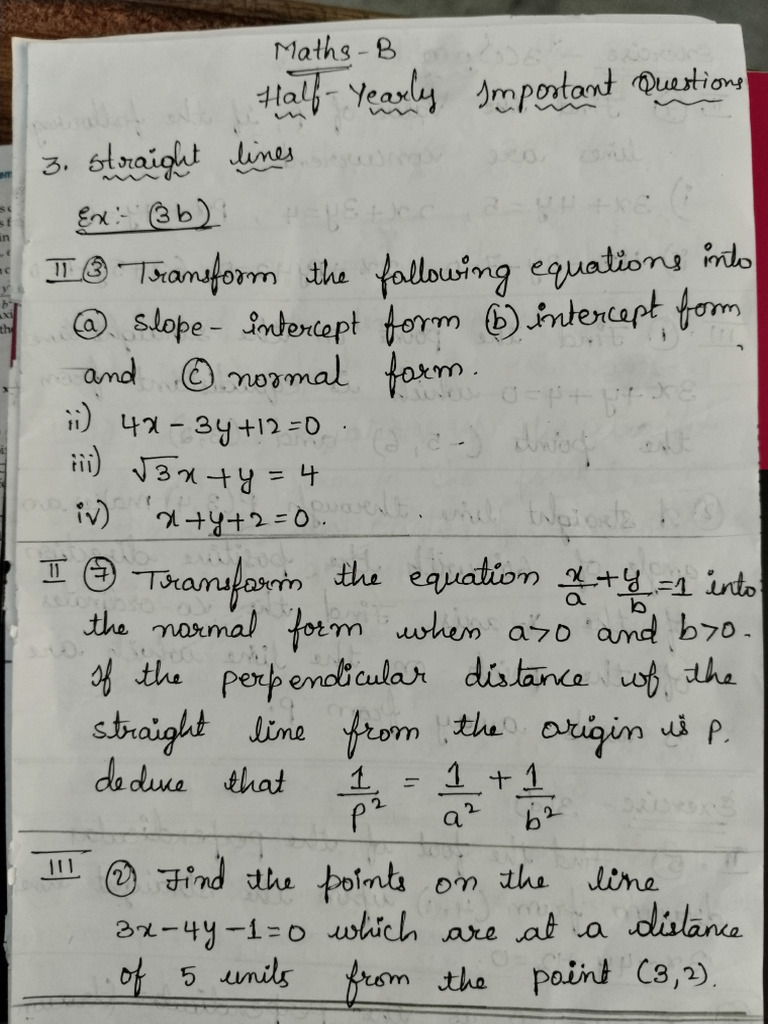 Maths-B
Half-Yearly Important Questions
3. Straight lines
Ex:- (3b)
II ③ Transform the following equations into
ⓐ slope-intercept form ⓑ intercept form
and ⓒ normal form.
ii) 4x-3y+12=0.
iii) √3x+y = 4
iv) x+y+2=0.
II ⑦ Transform the equation x/a+y/b=1 into
the normal form when a>0 and b>0.
If the perpendicular distance of the
straight line from the origin is p.
deduce that 1/p² = 1/a² + 1/b²
III ② Find the points on the line
3x-4y-1=0 which are at a distance
of 5 units from the point (3,2).